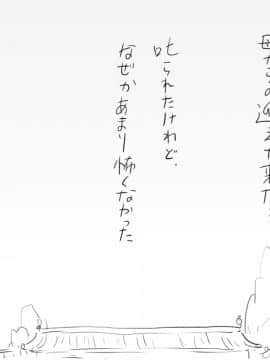 母からの迎えが来た。
叱られたけれど、
なぜかあまり怖くなかった